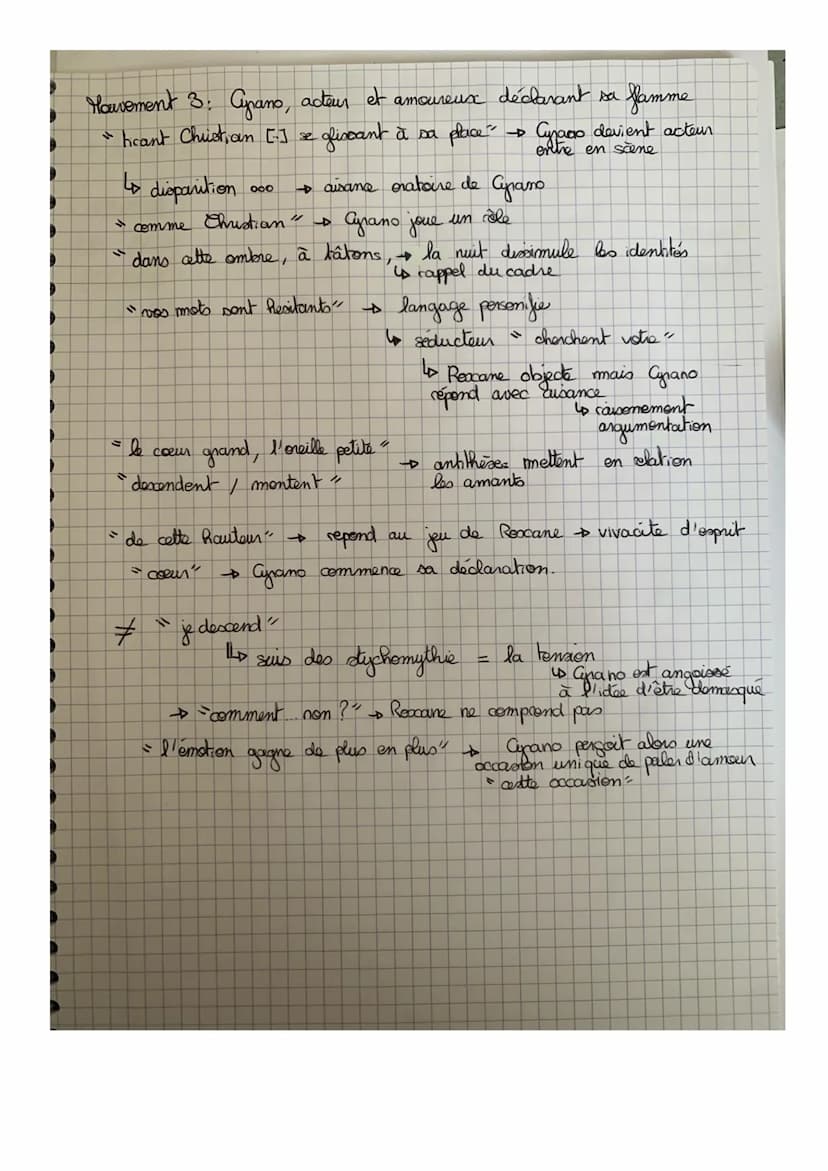 Mouvement 3: Cyrano, acteur et amoureux déclarant sa flamme
"tirant Christian [..] se glissant à sa place" → Cyrano devient acteur
entre en scène
↳ disparition ooo → aisance oratoire de Cyrano
"comme Christian" → Cyrano joue un rôle
"dans cette ombre, à tâtons, → la nuit dissimule les identités
↳ rappel du cadre
"vos mots sont hesitants" → langage personifie
↳ séducteur "cherchent votre"
↳ Roxane objecte mais Cyrano
répond avec aisance
↳ raisonnement
argumentation
"le coeur grand, l'oreille petite"
→ antithèses mettent en relation
"descendent / montent"
les amants
"de cette hauteur" → repond au jeu de Roxane → vivacite d'esprit
"coeur" → Cyrano commence sa déclaration.
≠ "je descend"
↳ suis des stychomythie = la tension
↳ Cyrano est angoissé
à l'idée d'être démasqué
→ "comment... non?" → Roxane ne comprend pas
"l'émotion gagne de plus en plus" → Cyrano perçoit alors une
occasion unique de paler d'amour
"cette occasion"